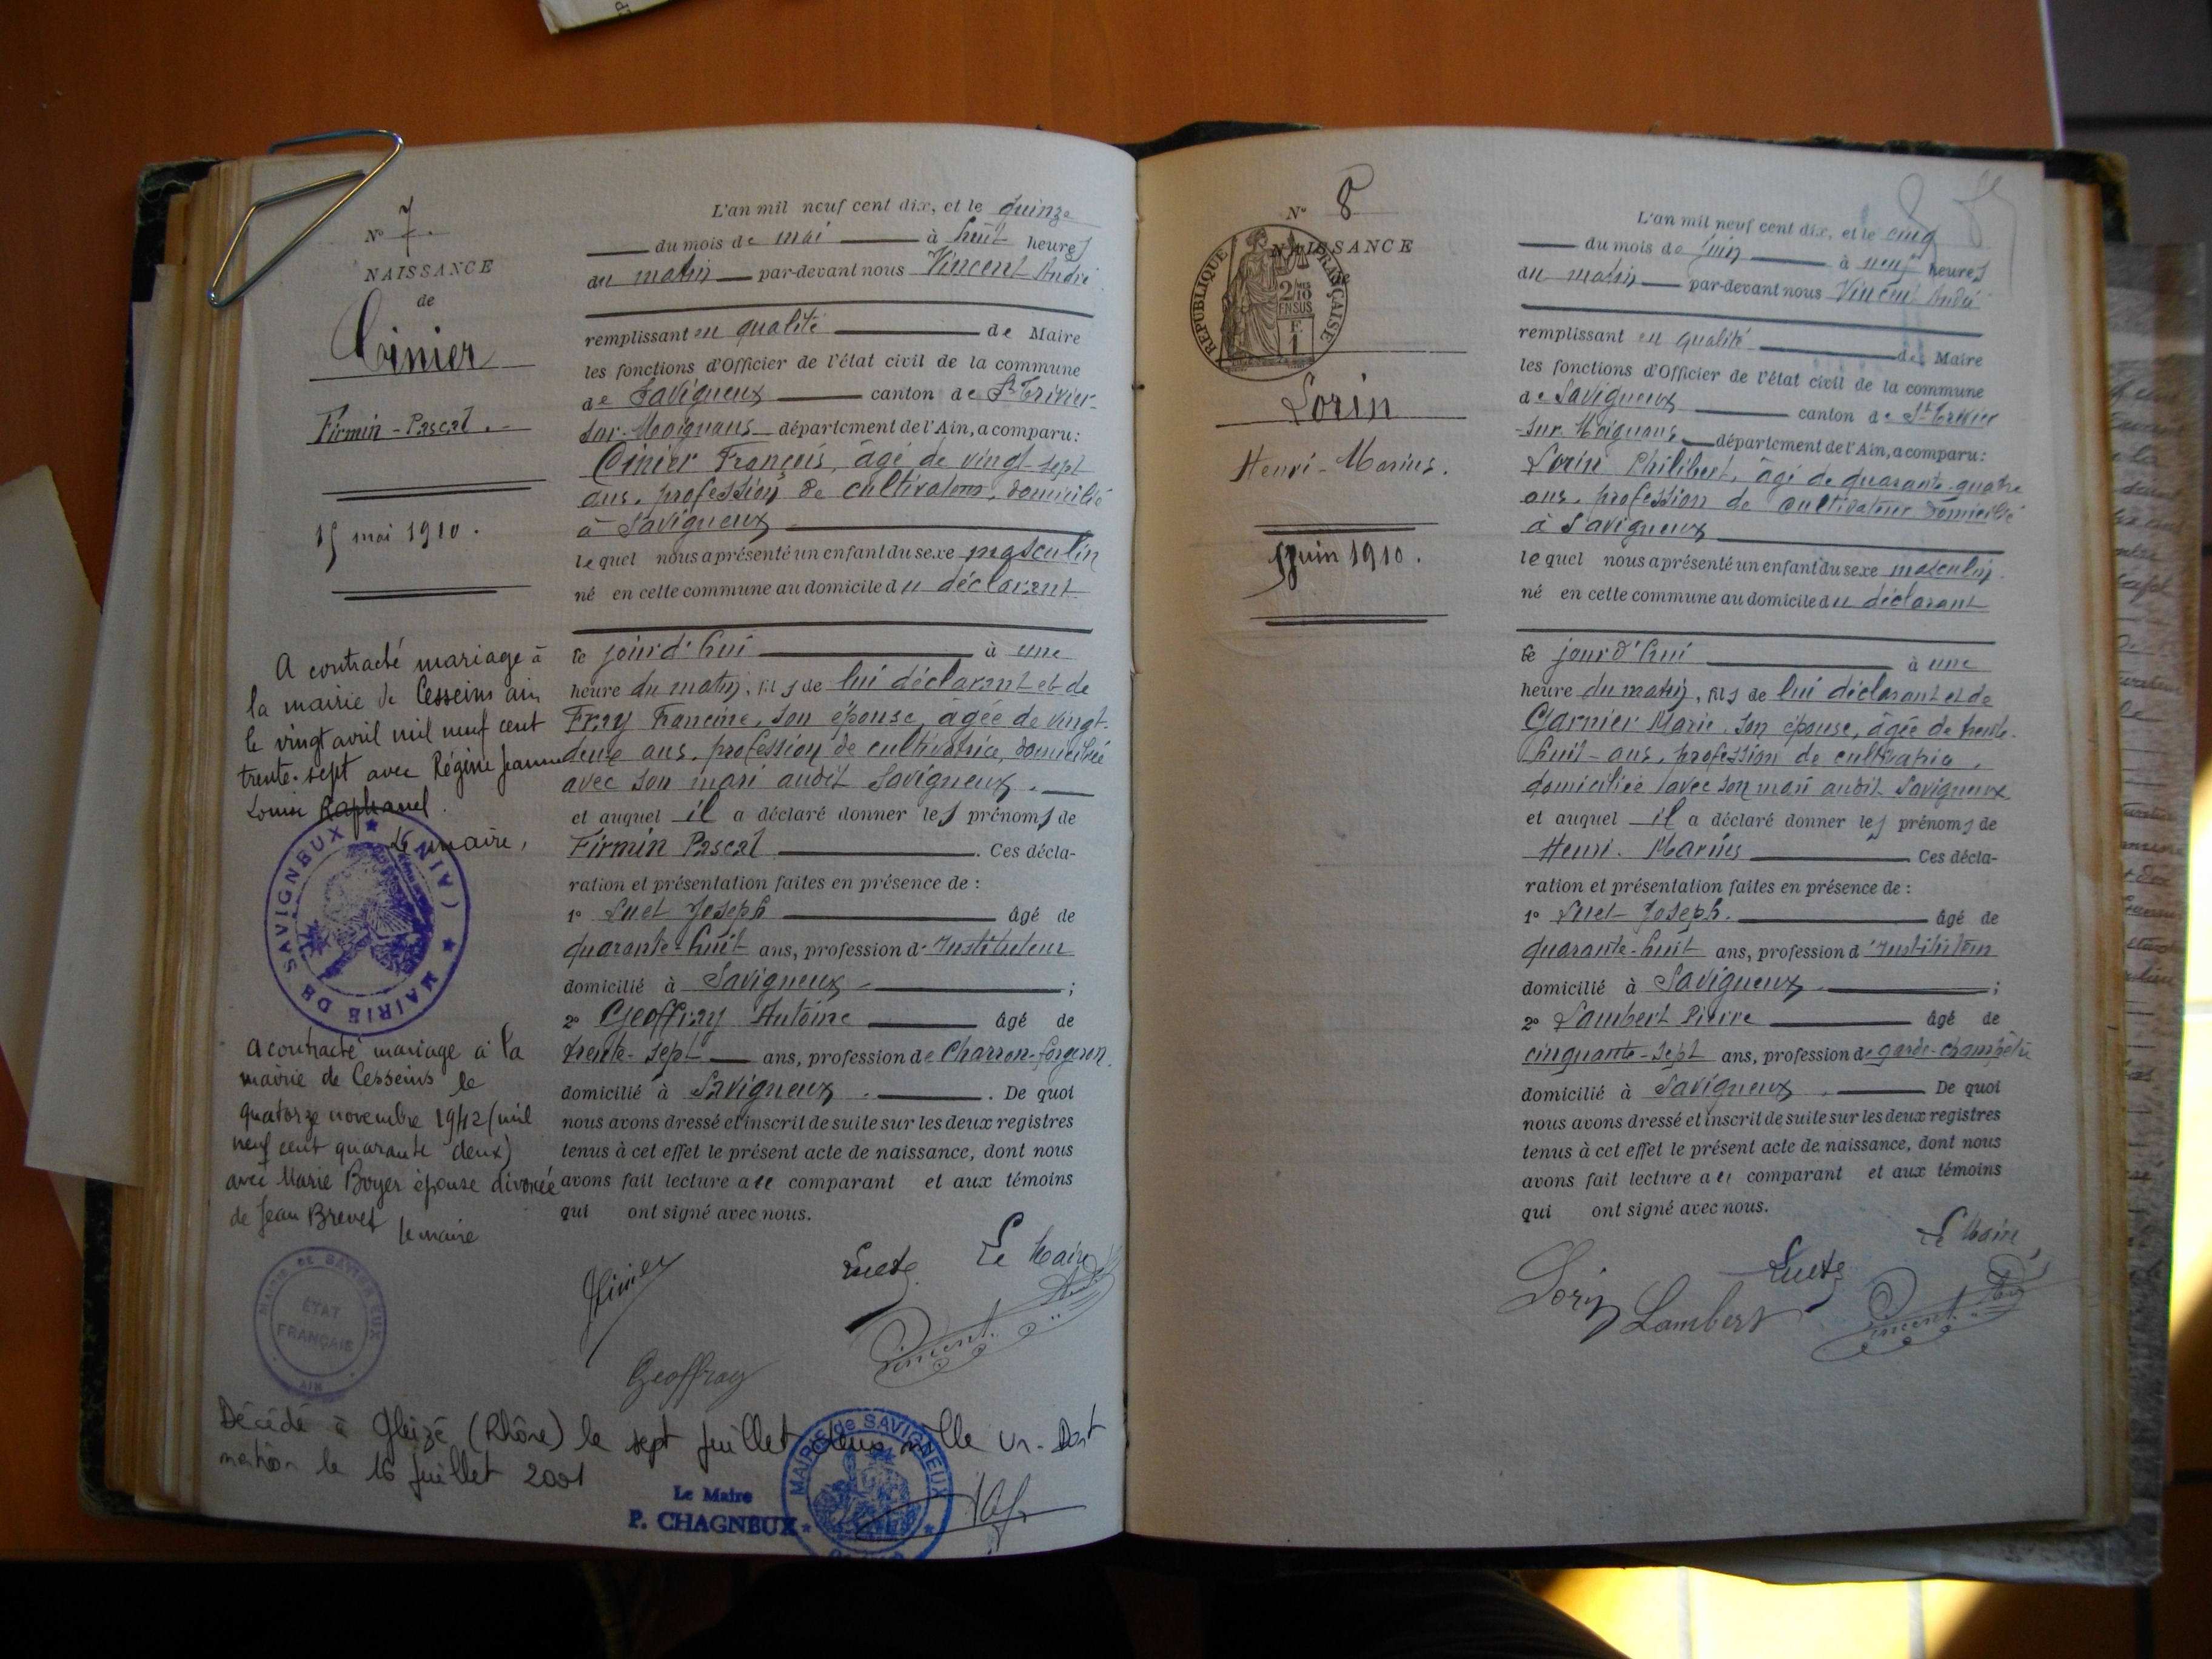 N° 7.
NAISSANCE
de
Cinier
Firmin-Pascal.
15 mai 1910.
A contracté mariage à
la mairie de Cesseins ain
le vingt avril mil neuf cent
trente-sept avec Régine Jeanne
Louise Raphanel.
Le maire,
MAIRIE DE SAVIGNEUX (AIN)
A contracté mariage à la
mairie de Cesseins le
quatorze novembre 1942 (mil
neuf cent quarante deux)
avec Marie Boyer épouse divorcée
de Jean Brevet
le maire
MAIRIE DE SAVIGNEUX
ÉTAT
FRANÇAIS
AIN
L'an mil neuf cent dix, et le quinze
du mois de mai à huit heures
du matin par-devant nous Vincent André
remplissant en qualité de Maire
les fonctions d'Officier de l'état civil de la commune
de Savigneux canton de St Trivier-
sur-Moignans département de l'Ain, a comparu:
Cinier François, âgé de vingt-sept
ans, profession de cultivateur, domicilié
à Savigneux
lequel nous a présenté un enfant du sexe masculin
né en cette commune au domicile du déclarant
le jourd'hui à une
heure du matin, fils de lui déclarant et de
Fray Francine, son épouse, âgée de vingt-
deux ans, profession de cultivatrice, domiciliée
avec son mari audit Savigneux.
et auquel il a déclaré donner les prénoms de
Firmin Pascal. Ces décla-
ration et présentation faites en présence de :
1° Luet Joseph âgé de
quarante-huit ans, profession d'Instituteur
domicilié à Savigneux ;
2° Geoffray Antoine âgé de
trente-sept ans, profession de Charron-forgeron,
domicilié à Savigneux. De quoi
nous avons dressé et inscrit de suite sur les deux registres
tenus à cet effet le présent acte de naissance, dont nous
avons fait lecture au comparant et aux témoins
qui ont signé avec nous.
Cinier Luet Le Maire
Geoffray Vincent
Décédé à Gleizé (Rhône) le sept juillet deux mille un. Dont
mention le 16 juillet 2001
Le Maire
P. CHAGNEUX
MAIRIE de SAVIGNEUX
N° 8
NAISSANCE
RÉPUBLIQUE FRANÇAISE
2/10
EN SUS
F.
1
Lorin
Henri-Marius.
5 Juin 1910.
L'an mil neuf cent dix, et le cinq
du mois de Juin à neuf heures
du matin par-devant nous Vincent André
remplissant en qualité de Maire
les fonctions d'Officier de l'état civil de la commune
de Savigneux canton de St Trivier
-sur-Moignans département de l'Ain, a comparu:
Lorin Philibert, âgé de quarante-quatre
ans, profession de cultivateur domicilié
à Savigneux
lequel nous a présenté un enfant du sexe masculin.
né en cette commune au domicile du déclarant
le jourd'hui à une
heure du matin, fils de lui déclarant et de
Garnier Marie, son épouse, âgée de trente-
huit ans, profession de cultivatrice,
domiciliée avec son mari audit Savigneux
et auquel il a déclaré donner les prénoms de
Henri. Marius Ces décla-
ration et présentation faites en présence de :
1° Luet Joseph. âgé de
quarante-huit ans, profession d'Instituteur
domicilié à Savigneux ;
2° Lambert Pierre âgé de
cinquante-sept ans, profession de garde-champêtre
domicilié à Savigneux. De quoi
nous avons dressé et inscrit de suite sur les deux registres
tenus à cet effet le présent acte de naissance, dont nous
avons fait lecture au comparant et aux témoins
qui ont signé avec nous.
Le Maire
Lorin Lambert Luet Vincent